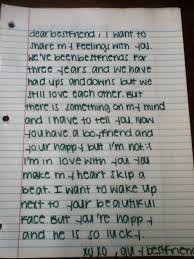 dear bestfriend, I want to
share my feelings with you.
we've been bestfriends for
three years and we have
had ups and downs but we
still love each other. But
there is something on my mind
and I have to tell you. Now
you have a boyfriend and
your happy but I'm not: (
I'm in love with you. You
make my heart skip a
beat. I want to wake up
next to your beautiful
face. But you're happy
and he is so lucky.
xoxo, guy bestfriend